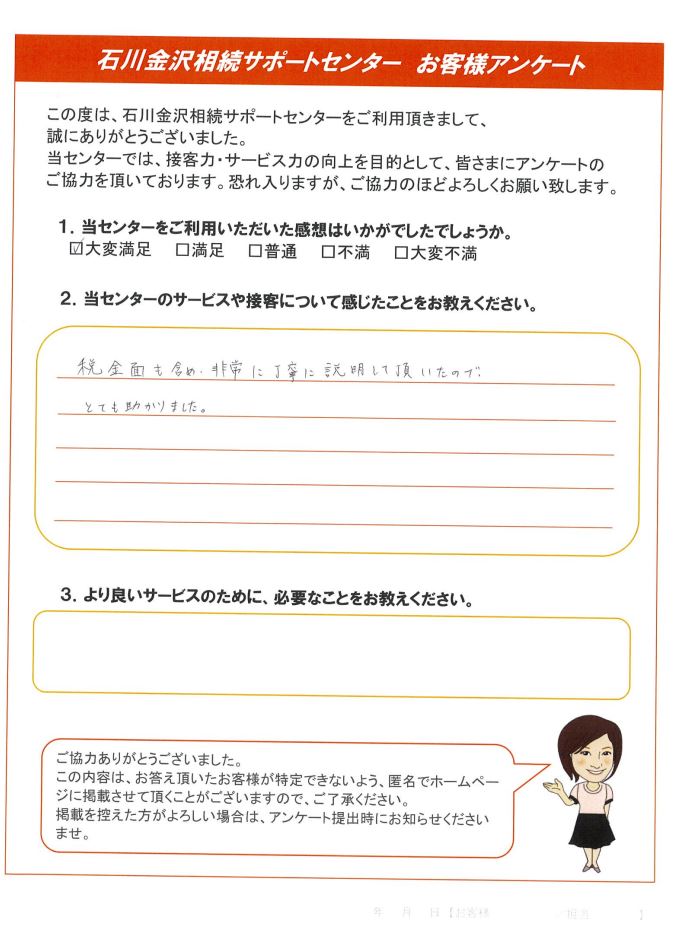 石川金沢相続サポートセンター　お客様アンケート
この度は、石川金沢相続サポートセンターをご利用頂きまして、
誠にありがとうございました。
当センターでは、接客力・サービス力の向上を目的として、皆さまにアンケートの
ご協力を頂いております。恐れ入りますが、ご協力のほどよろしくお願い致します。
1．当センターをご利用いただいた感想はいかがでしたでしょうか。
☑大変満足　□満足　□普通　□不満　□大変不満
2．当センターのサービスや接客について感じたことをお教えください。
税金面も含め、非常に丁寧に説明して頂いたので、
とても助かりました。
3．より良いサービスのために、必要なことをお教えください。
ご協力ありがとうございました。
この内容は、お答え頂いたお客様が特定できないよう、匿名でホームペー
ジに掲載させて頂くことがございますので、ご了承ください。
掲載を控えた方がよろしい場合は、アンケート提出時にお知らせください
ませ。
年　月　日【お客様　　　　／担当　　　】